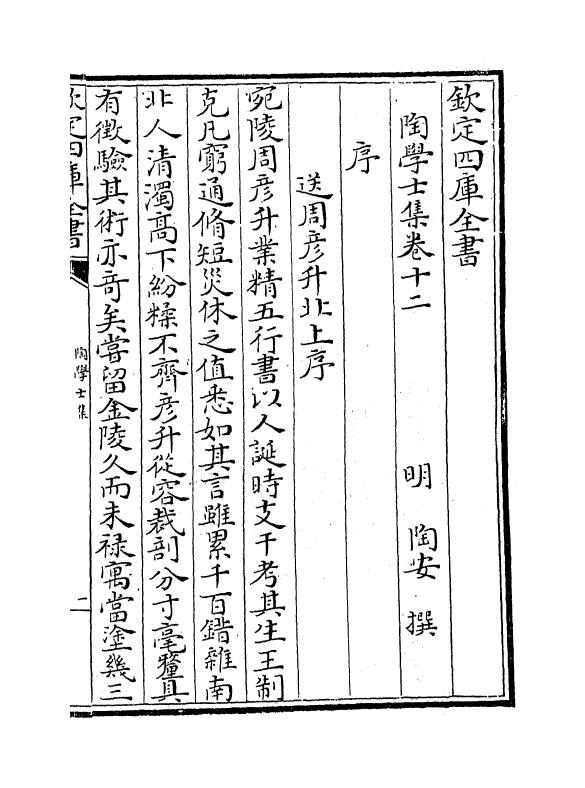 欽定四庫全書
陶學士集卷十二
明 陶安 撰
序
送周彦升北上序
宛陵周彦升業精五行書以人誕時支干考其生王制
克凡窮通脩短災休之值悉如其言雖累千百錯雜南
北人清濁高下紛糅不齊彦升從容裁剖分寸毫釐具
有徴驗其術亦竒矣嘗留金陵久而未禄寓當塗幾三
欽定四庫全書
陶學士集